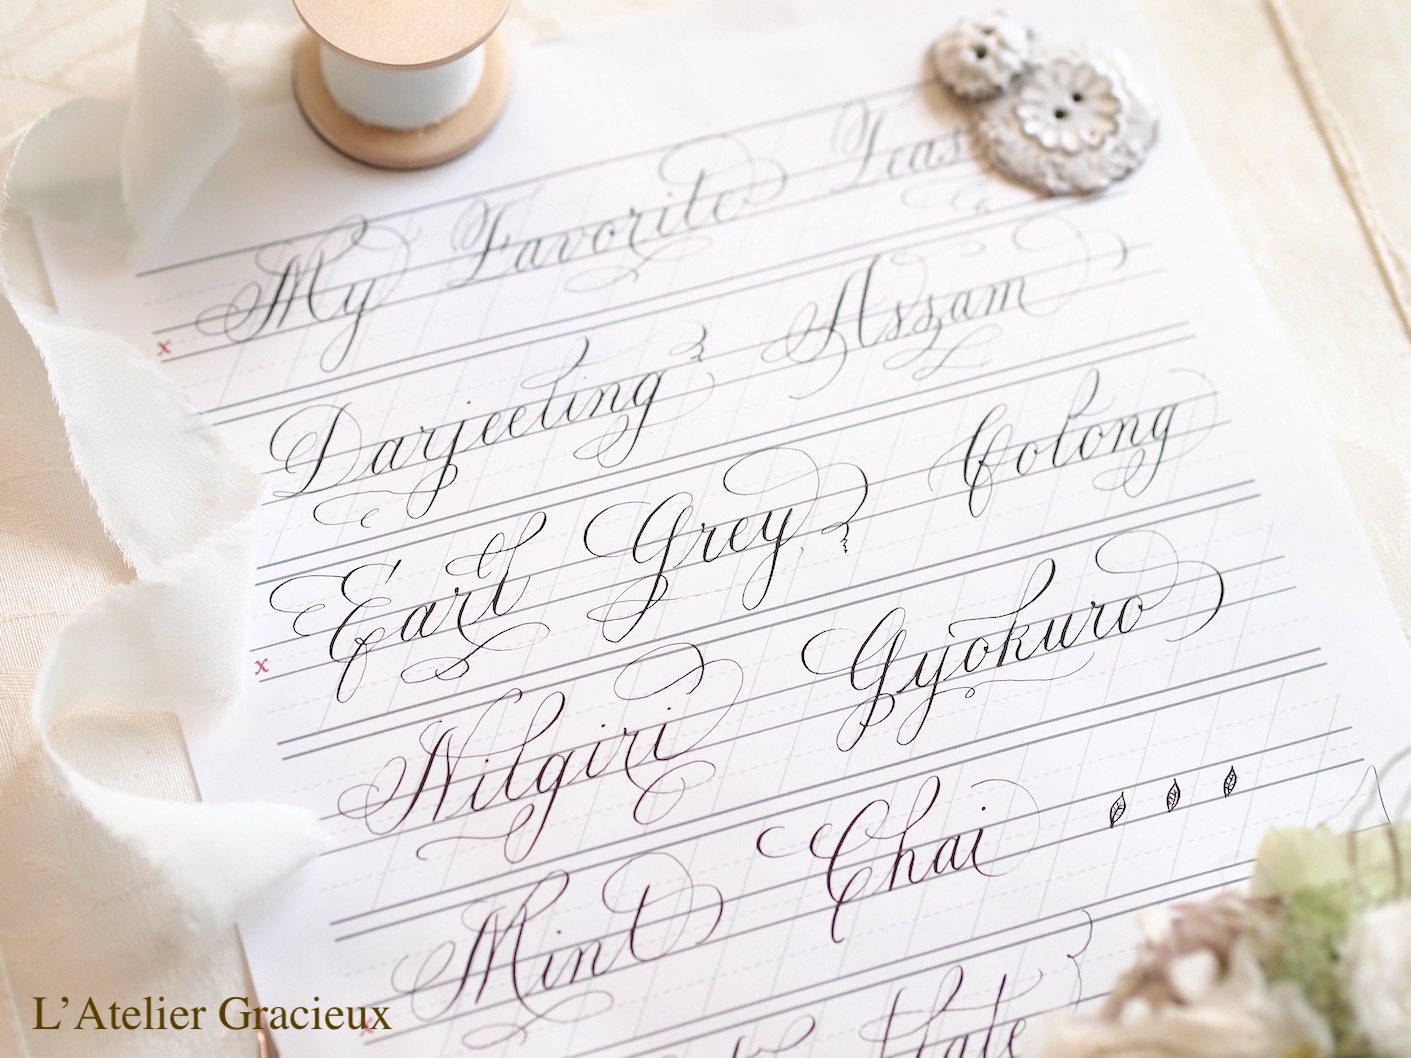 My Favorite Teas
x
Darjeeling Assam
Earl Grey Colong
x
Nilgiri Gyokuro
Mint Chai
x
L'Atelier Gracieux